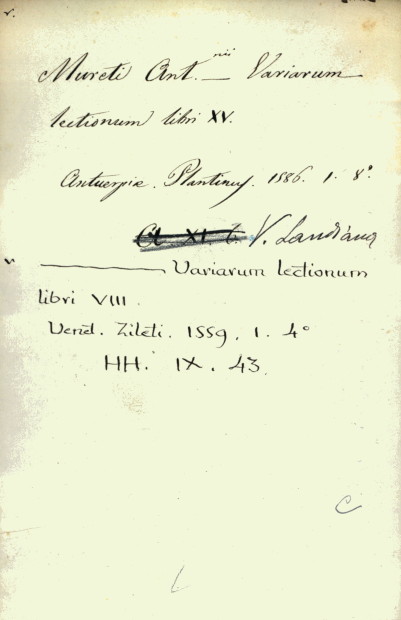 v.
Mureti Ant.nii — Variarum
lectionum libri XV.
Antuerpiæ. Plantinus. 1586. 1. 8°.
V. Landiana
v
——— Variarum lectionum
libri VIII.
Venet. Zileti. 1559. 1. 4°
HH. IX. 43.
C